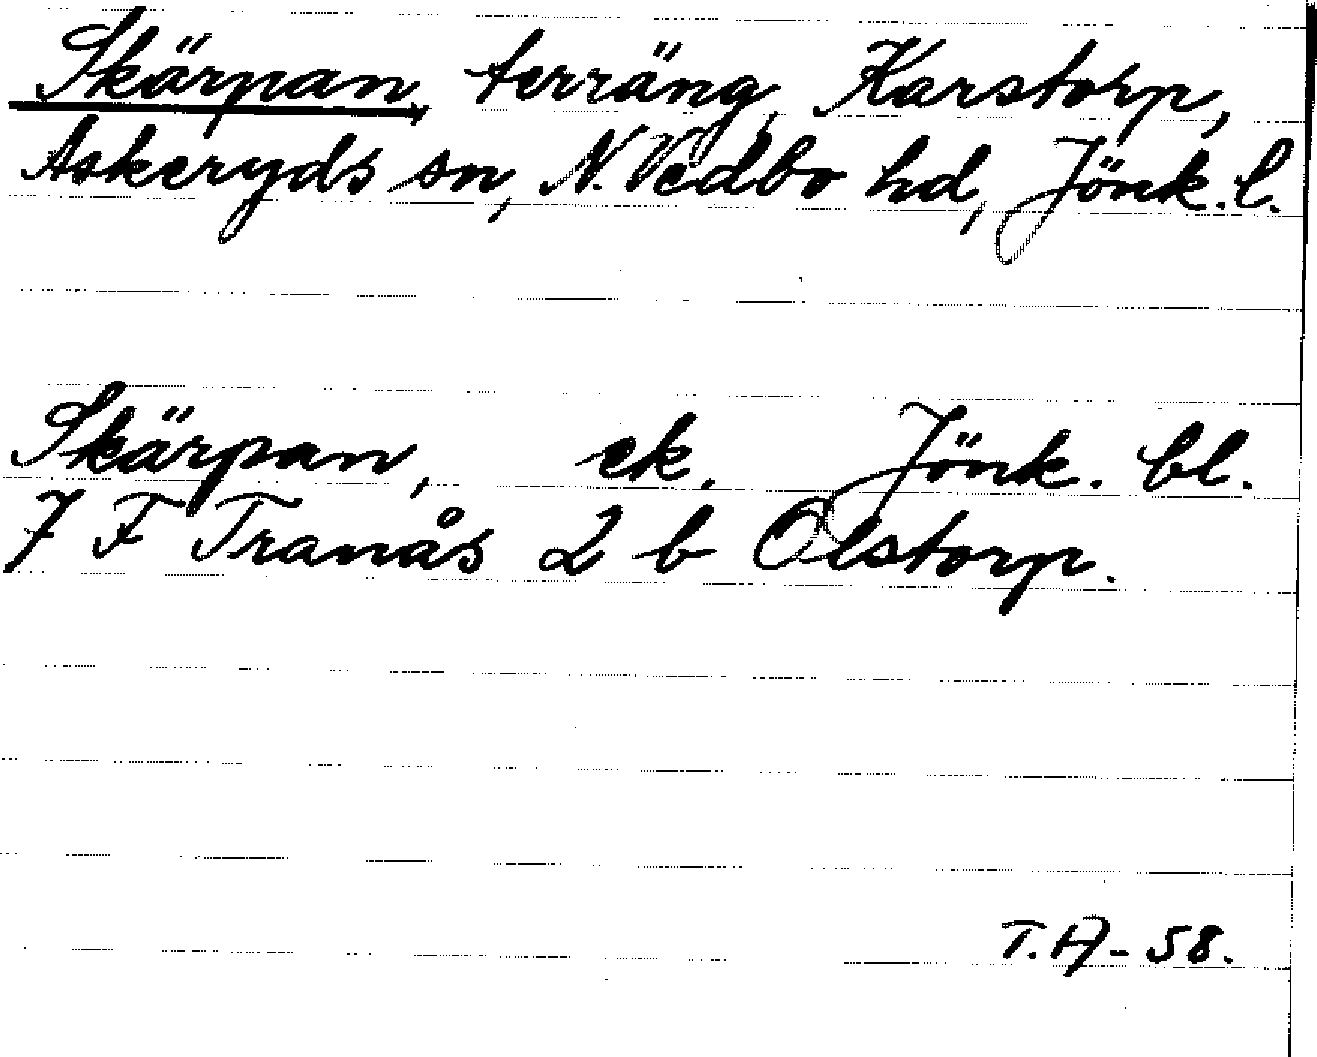 Skärpan, terräng, Karstorp,
Askeryds sn, N. Vedbo hd, Jönk. l.
Skärpan, ek. Jönk. bl.
7 F Tranås 2 b Olstorp.
T.A-58.